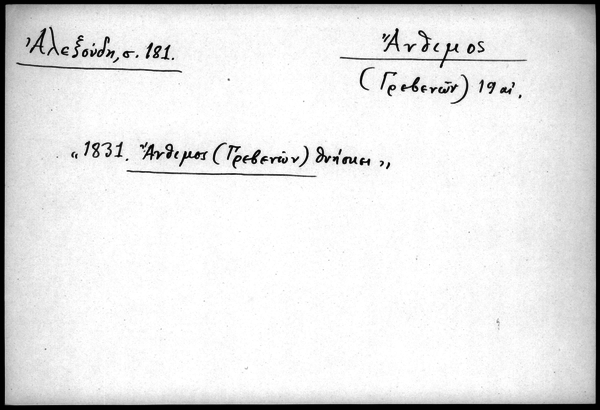 Ἀλεξούδη, σ. 181.
Ἄνθιμος
(Γρεβενῶν) 19 αἰ.
„1831. Ἄνθιμος (Γρεβενῶν) θνήσκει„